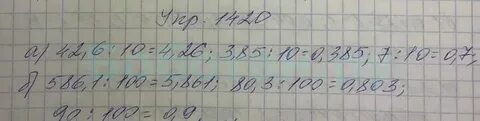 Упр. 1420
а) 42,6 : 10 = 4,26; 3,85 : 10 = 0,385; 7 : 10 = 0,7;
б) 586,1 : 100 = 5,861; 80,3 : 100 = 0,803;
90 : 100 = 0,9.